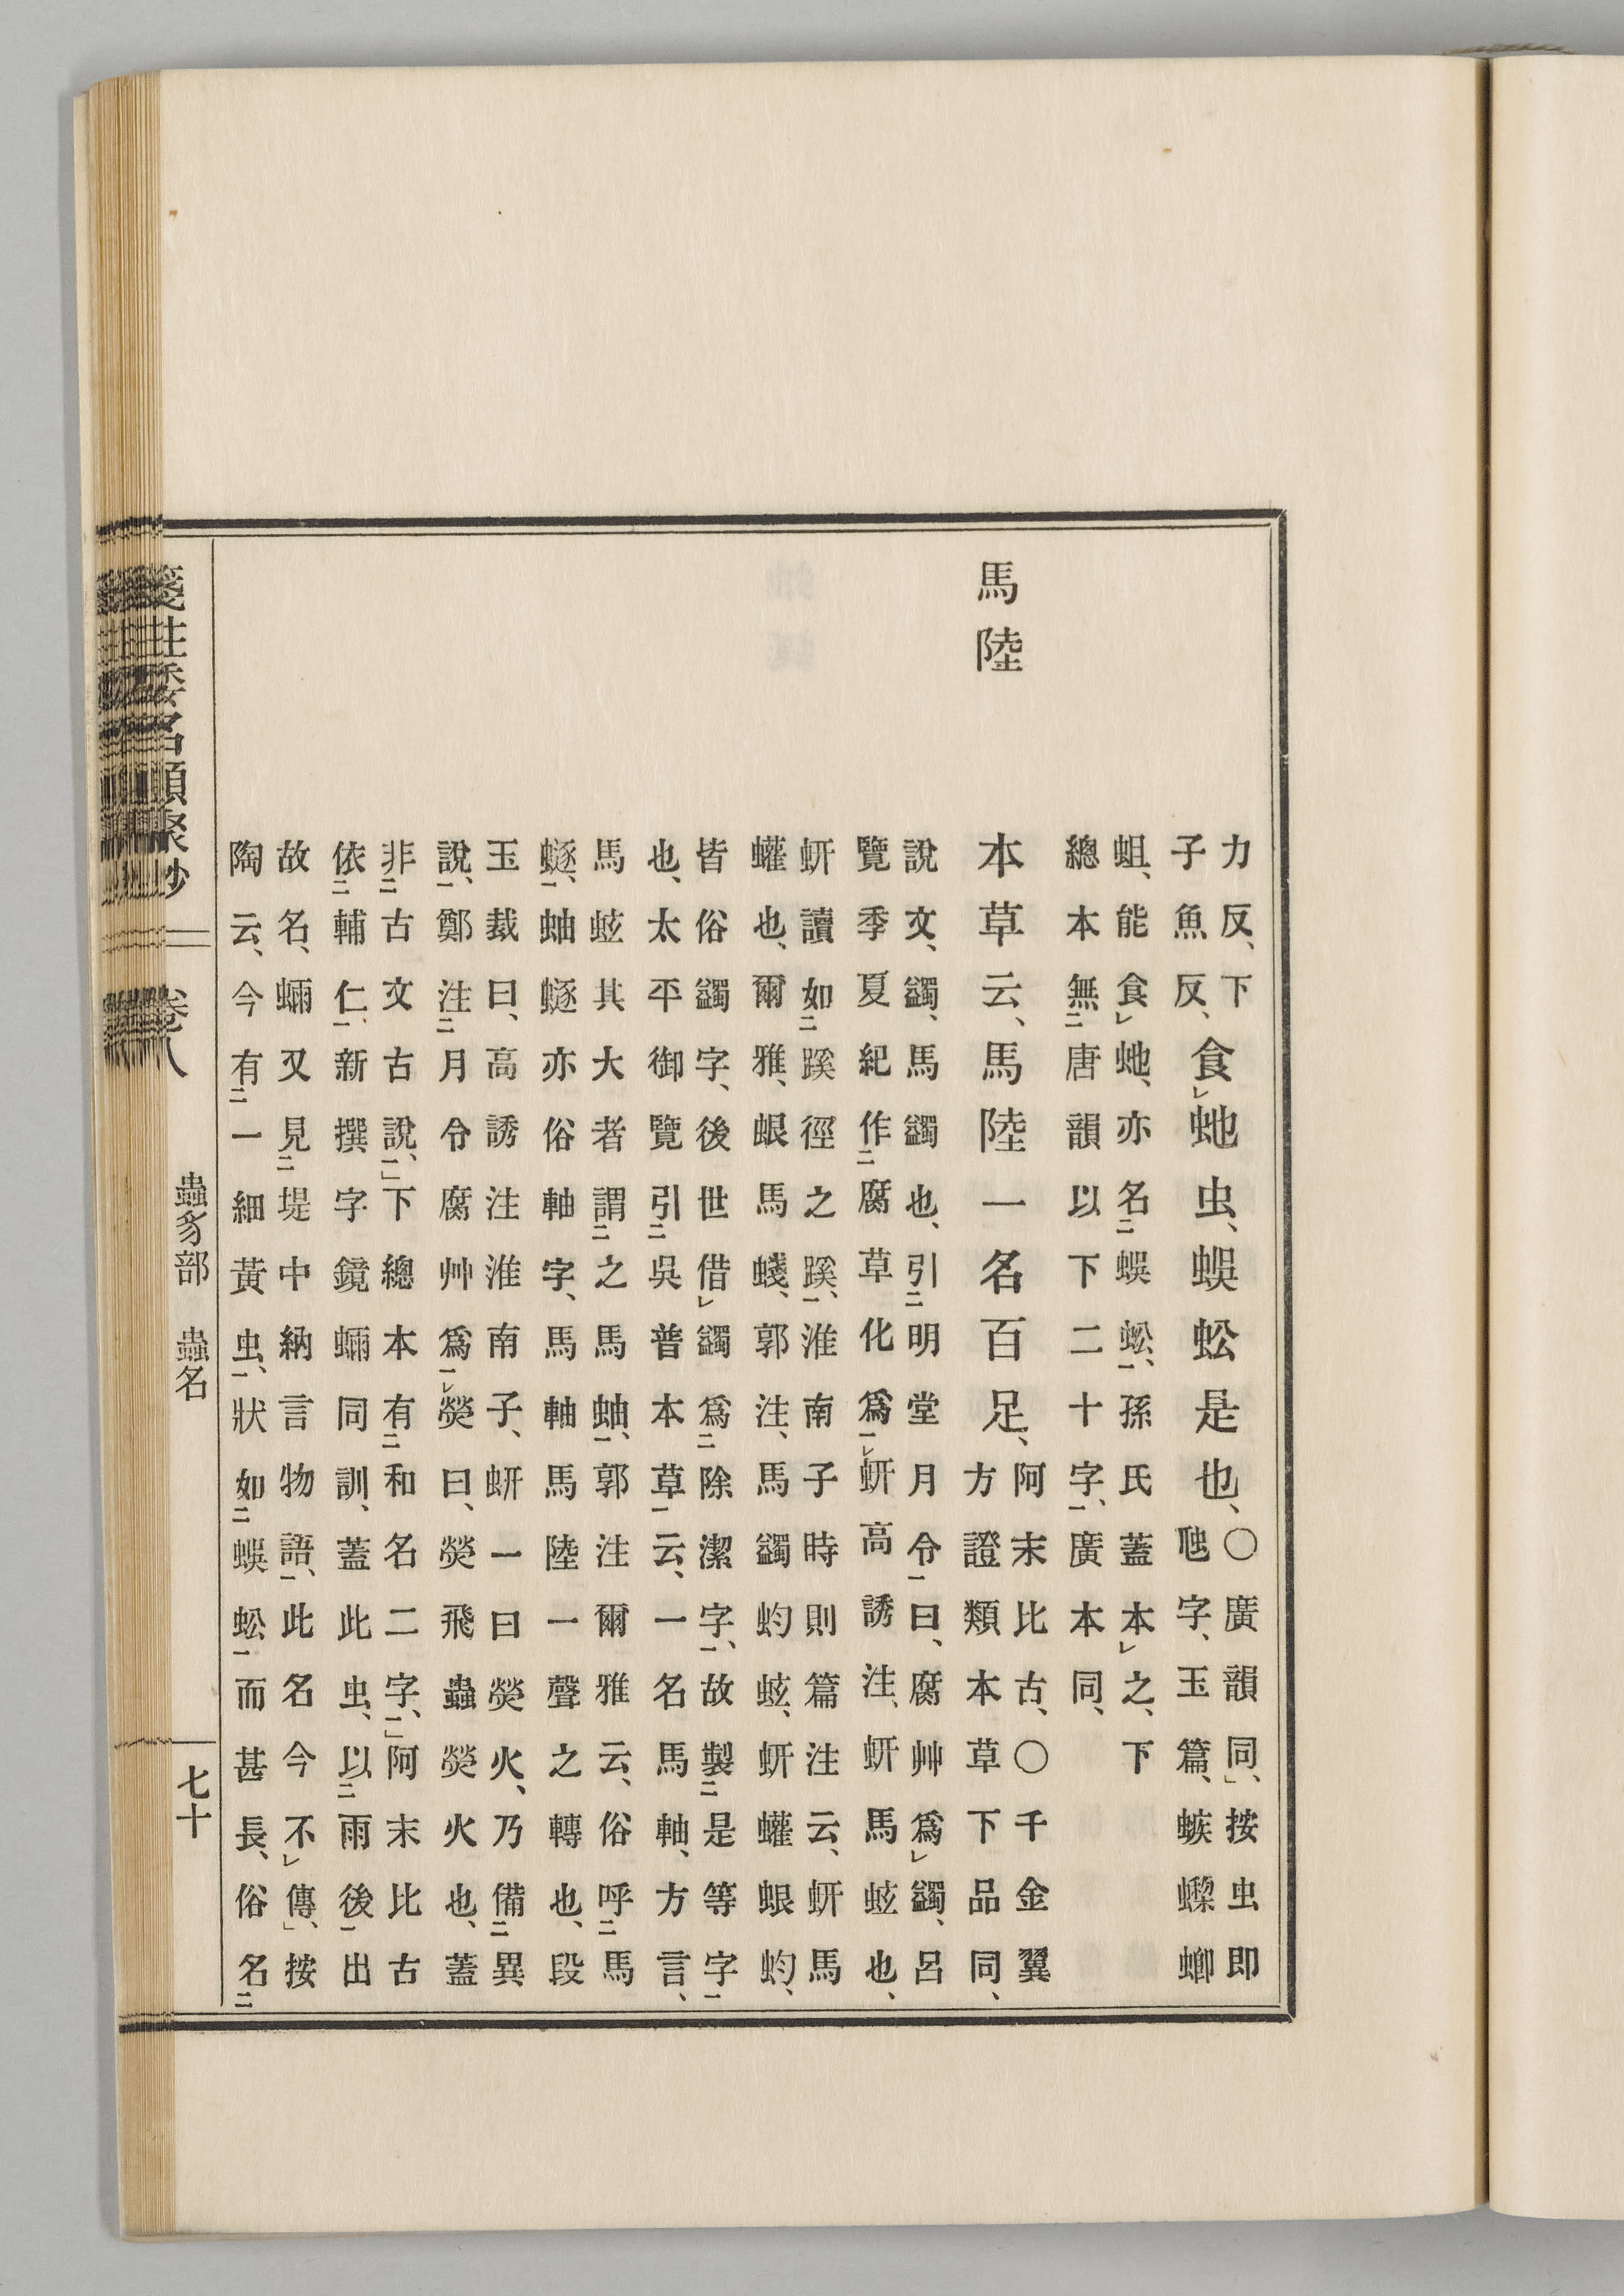 力反、下
子魚反、
食㆑虵虫、蜈蚣是也、
○廣韻同、按虫即
虺字、玉篇、螏蟍蝍
蛆、能食㆑虵、亦名㆓蜈蚣㆒、孫氏蓋本㆑之、下
總本無㆓唐韻以下二十字㆒、廣本同、
馬陸
本草云、馬陸一名百足、
阿末比古、○千金翼
方證類本草下品同、
說文、蠲、馬蠲也、引㆓明堂月令㆒曰、腐艸爲㆑蠲、呂
覽季夏紀作㆓腐草化爲㆒㆑蚈高誘注、蚈馬蚿也、
蚈讀如㆓蹊徑之蹊㆒、淮南子時則篇注云、蚈馬
蠸也、爾雅、蛝馬蝬、郭注、馬蠲蚐蚿、蚈蠸蛝蚐、
皆俗蠲字、後世借㆑蠲爲㆓除潔字㆒、故製㆓是等字㆒
也、太平御覽引㆓吳普本草㆒云、一名馬軸、方言、
馬蚿其大者謂㆓之馬蚰㆒、郭注爾雅云、俗呼㆓馬
蝬㆒、蚰蝬亦俗軸字、馬軸馬陸一聲之轉也、段
玉裁曰、高誘注淮南子、蚈一曰熒火、乃備㆓異
說㆒、鄭注㆓月令腐艸爲㆒㆑熒曰、熒飛蟲熒火也、蓋
非㆓古文古說㆒、」下總本有㆓和名二字㆒、」阿末比古
依㆓輔仁㆒、新撰字鏡蛧同訓、蓋此虫、以㆓雨後㆒出
故名、蛧又見㆓堤中納言物語㆒、此名今不㆑傳、」按
陶云、今有㆓一細黃虫㆒、狀如㆓蜈蚣㆒而甚長、俗名㆓
箋注倭名類聚抄 卷八 蟲豸部 蟲名 七十